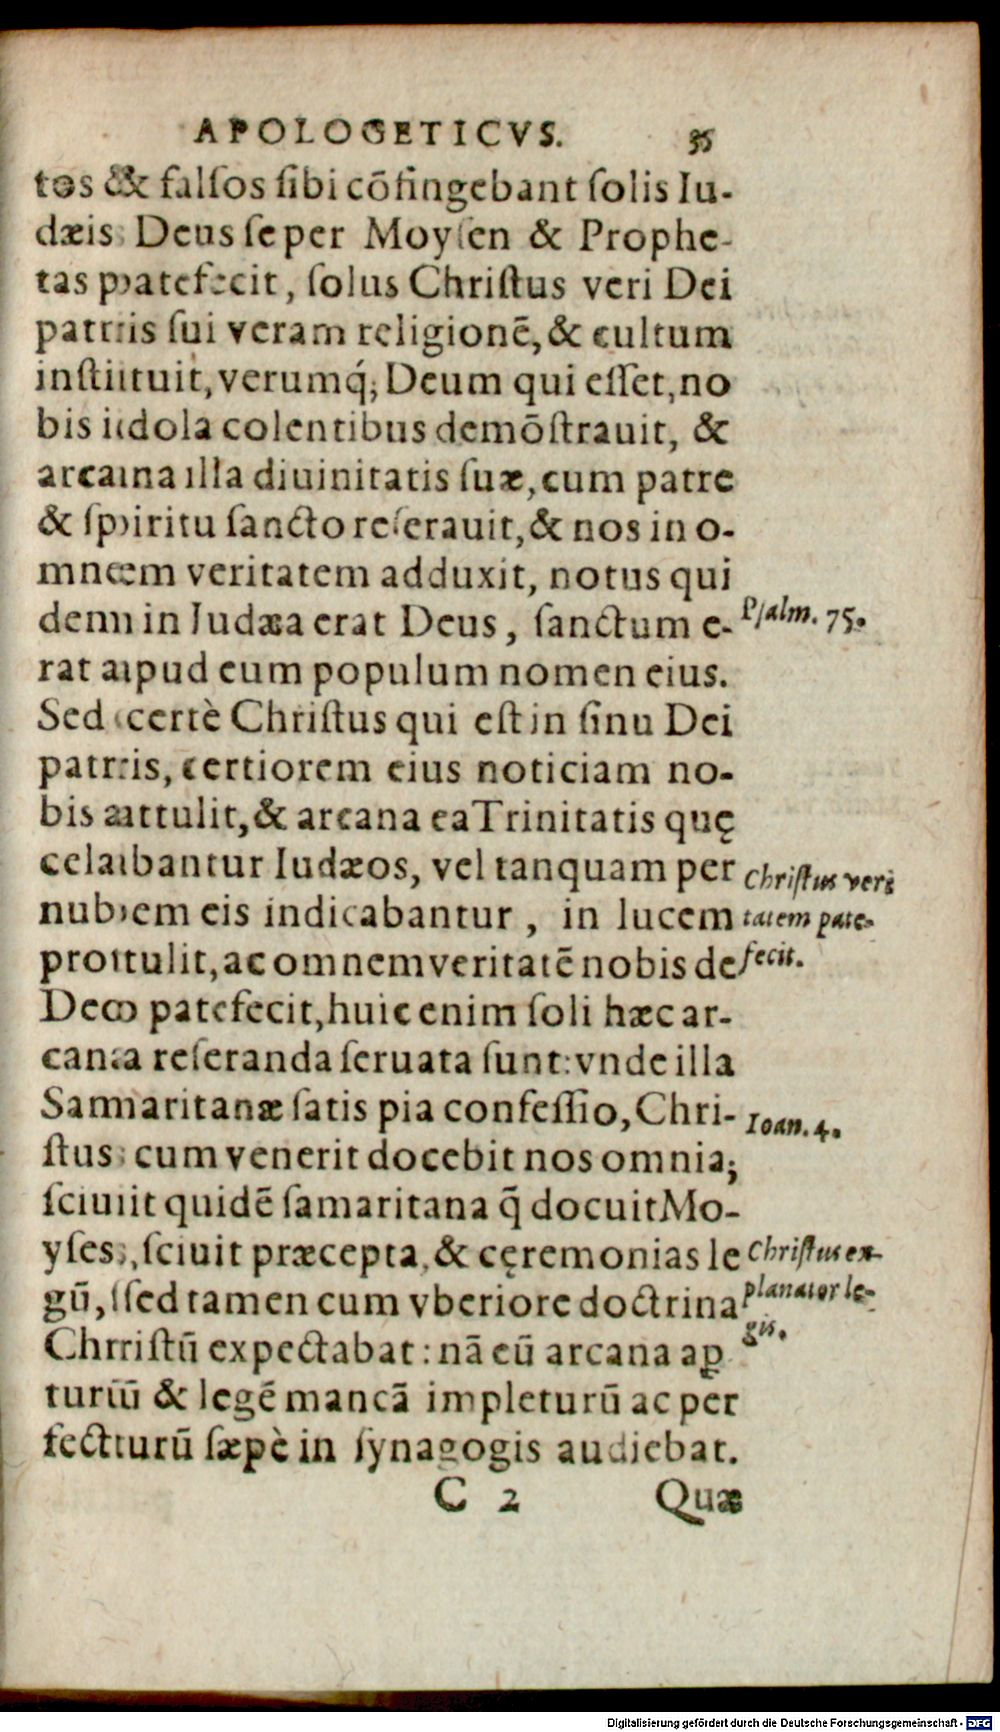 APOLOGETICVS. 35
tos & falsos sibi cōfingebant solis Iu-
dæis Deus se per Moysen & Prophe-
tas patefecit, solus Christus veri Dei
patris sui veram religionē, & cultum
instituit, verumq́; Deum qui esset, no
bis idola colentibus demōstrauit, &
arcana illa diuinitatis suæ, cum patre
& spiritu sancto reserauit, & nos in o-
mnem veritatem adduxit, notus qui
dem in Iudæa erat Deus, sanctum e-
Psalm. 75.
rat apud eum populum nomen eius.
Sed certè Christus qui est in sinu Dei
patris, certiorem eius noticiam no-
bis attulit, & arcana ea Trinitatis quę
celabantur Iudæos, vel tanquam per
Christus veri
nubem eis indicabantur, in lucem
tatem pate-
protulit, ac omnem veritatē nobis de
fecit.
Deo patefecit, huic enim soli hæc ar-
cana reseranda seruata sunt: vnde illa
Samaritanæ satis pia confessio, Chri-
Ioan. 4.
stus cum venerit docebit nos omnia;
sciuit quidē samaritana q̄ docuit Mo-
yses, sciuit præcepta, & cęremonias le
Christus ex-
gū, sed tamen cum vberiore doctrina
planator le-
gis.
Christū expectabat: nā eū arcana ap
turū & legē mancā impleturū ac per
fecturū sæpè in synagogis audiebat.
C 2 Quæ
Digitalisierung gefördert durch die Deutsche Forschungsgemeinschaft - DFG